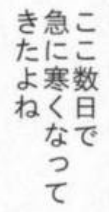 ここ数日で
急に寒くなって
きたよね